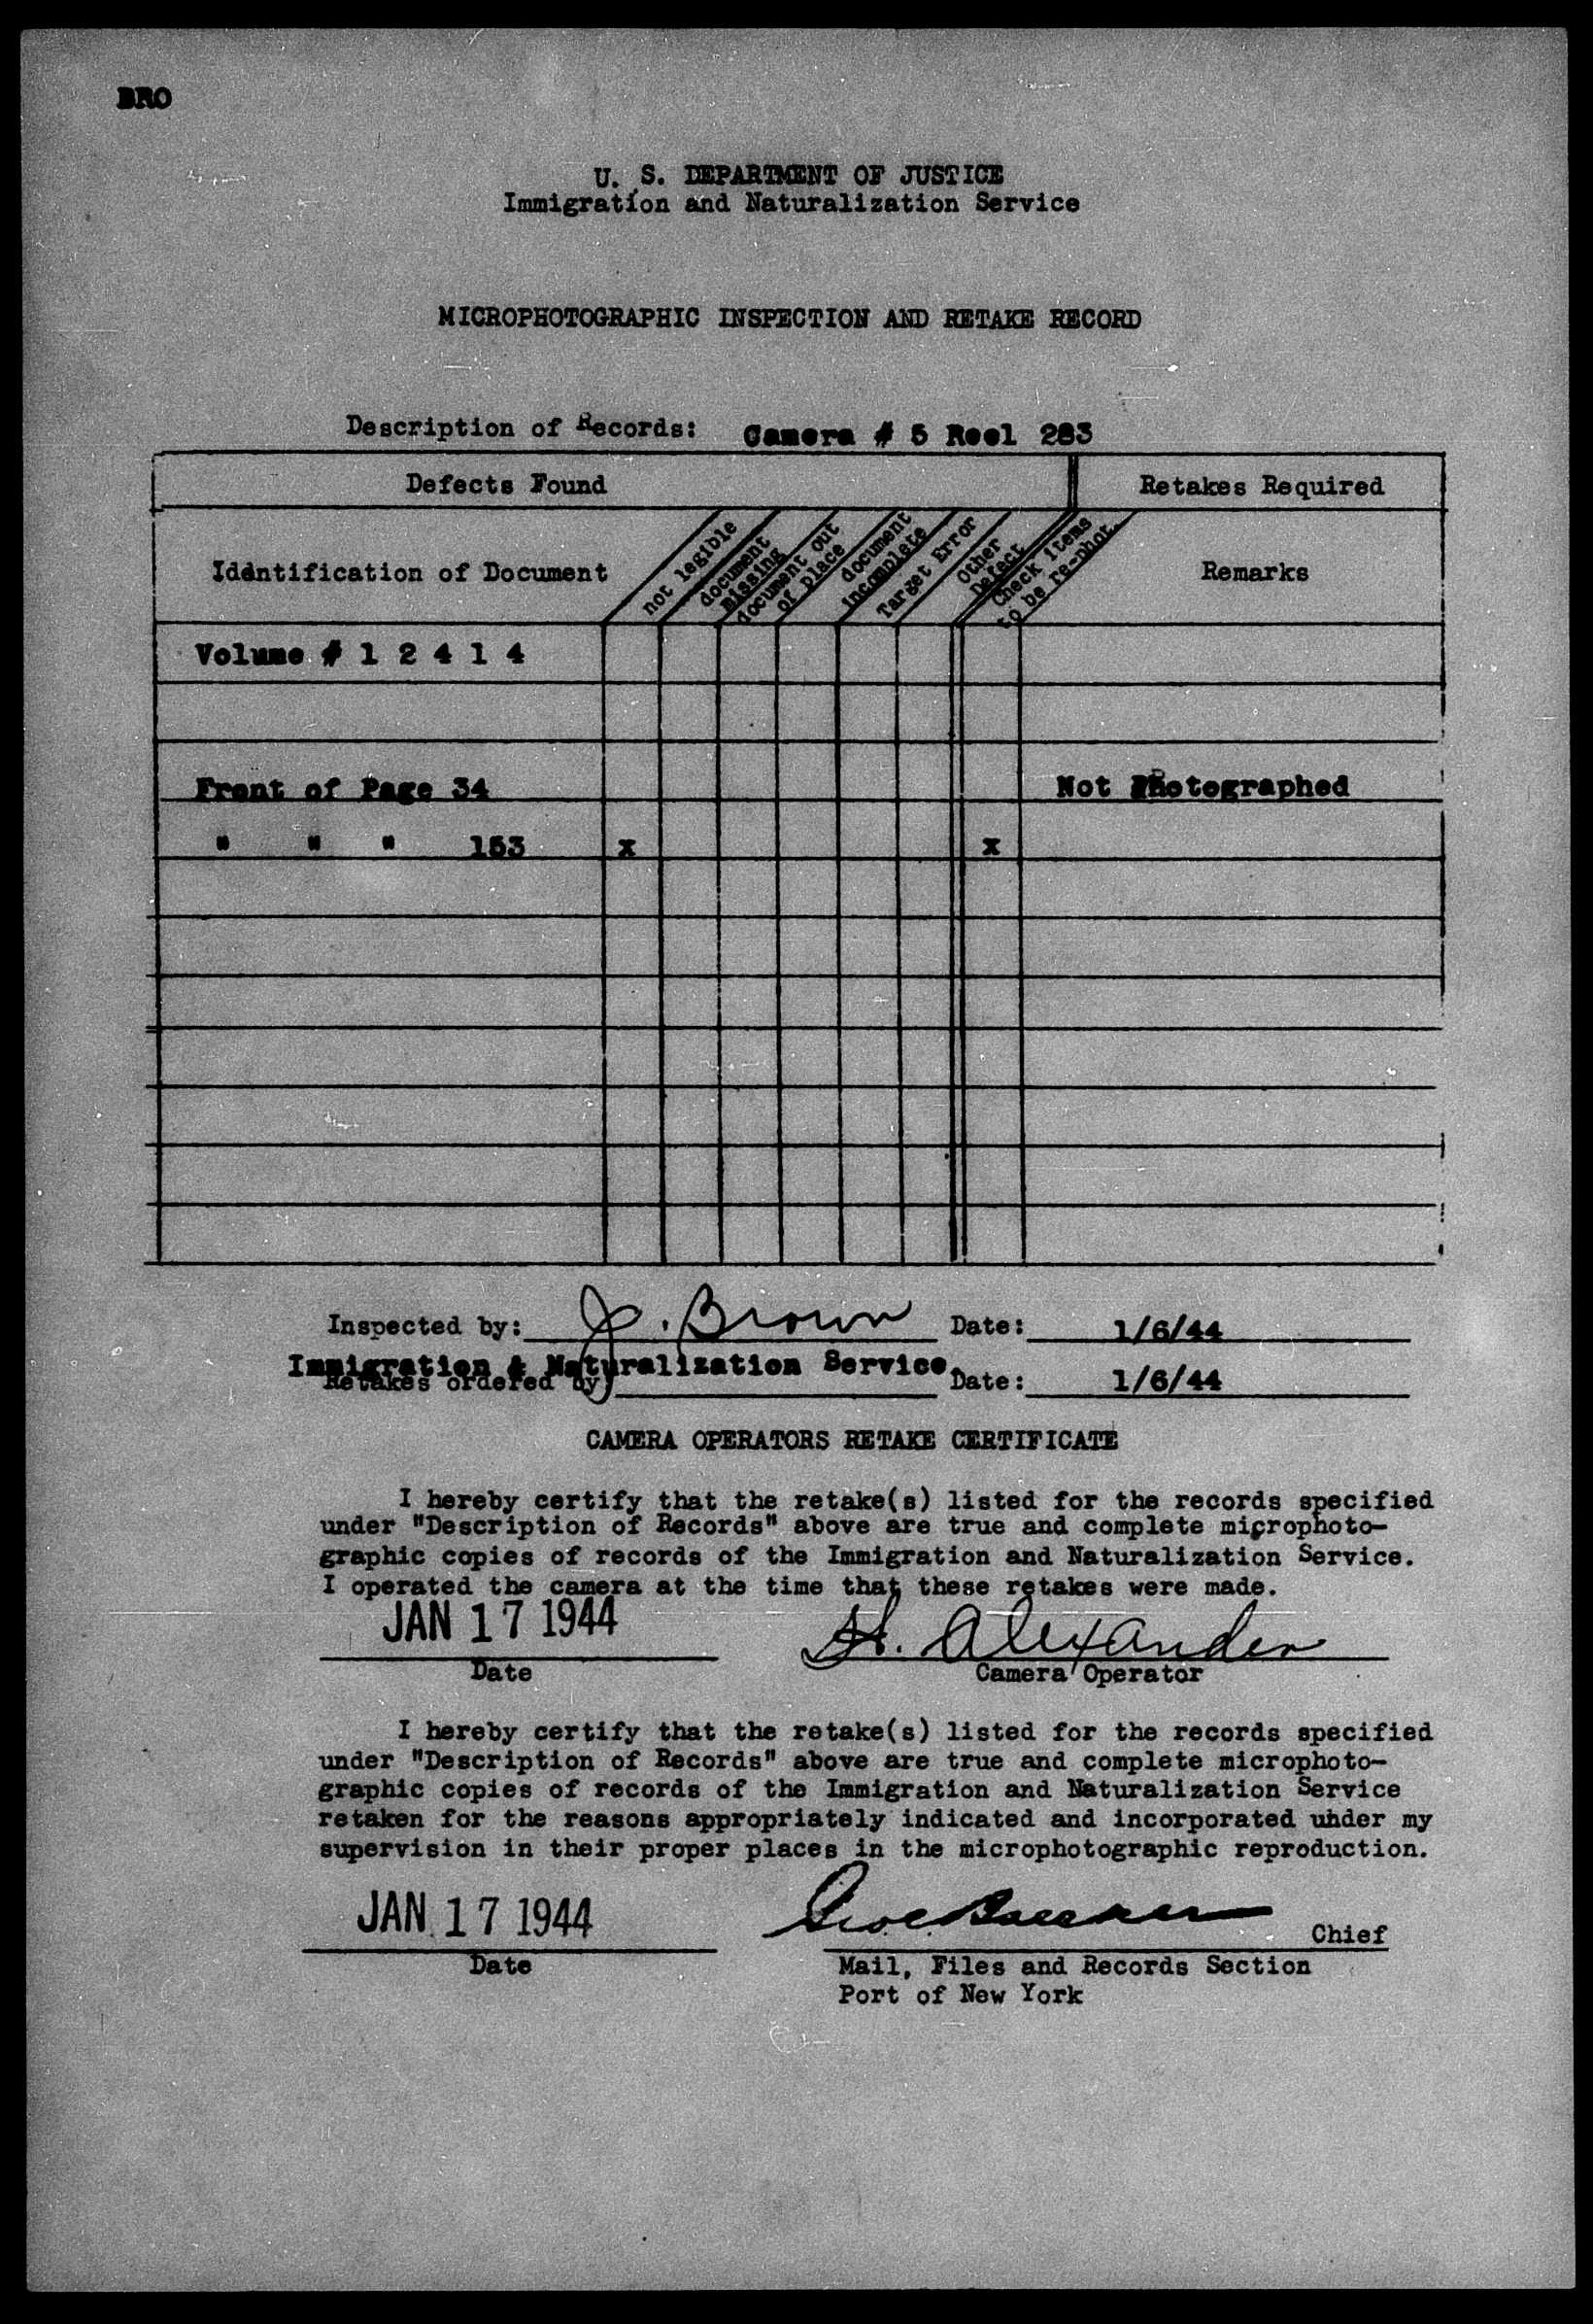 BRO
U. S. DEPARTMENT OF JUSTICE
Immigration and Naturalization Service
MICROPHOTOGRAPHIC INSPECTION AND RETAKE RECORD
Description of Records: Camera # 5 Reel 283
Defects Found
Retakes Required
Identification of Document
not legible
document missing
document out of place
document incomplete
Target Error
Other Defect
Check items to be re-phot.
Remarks
Volume # 1 2 4 1 4
Front of Page 34 Not Photographed
" " " 153 x x
Inspected by: J. Brown Date: 1/6/44
Immigration & Naturalization Service.
Retakes ordered by Date: 1/6/44
CAMERA OPERATORS RETAKE CERTIFICATE
I hereby certify that the retake(s) listed for the records specified
under "Description of Records" above are true and complete microphoto-
graphic copies of records of the Immigration and Naturalization Service.
I operated the camera at the time that these retakes were made.
JAN 17 1944 H. Alexander
Date Camera Operator
I hereby certify that the retake(s) listed for the records specified
under "Description of Records" above are true and complete microphoto-
graphic copies of records of the Immigration and Naturalization Service
retaken for the reasons appropriately indicated and incorporated under my
supervision in their proper places in the microphotographic reproduction.
JAN 17 1944
Chief
Date Mail, Files and Records Section
Port of New York